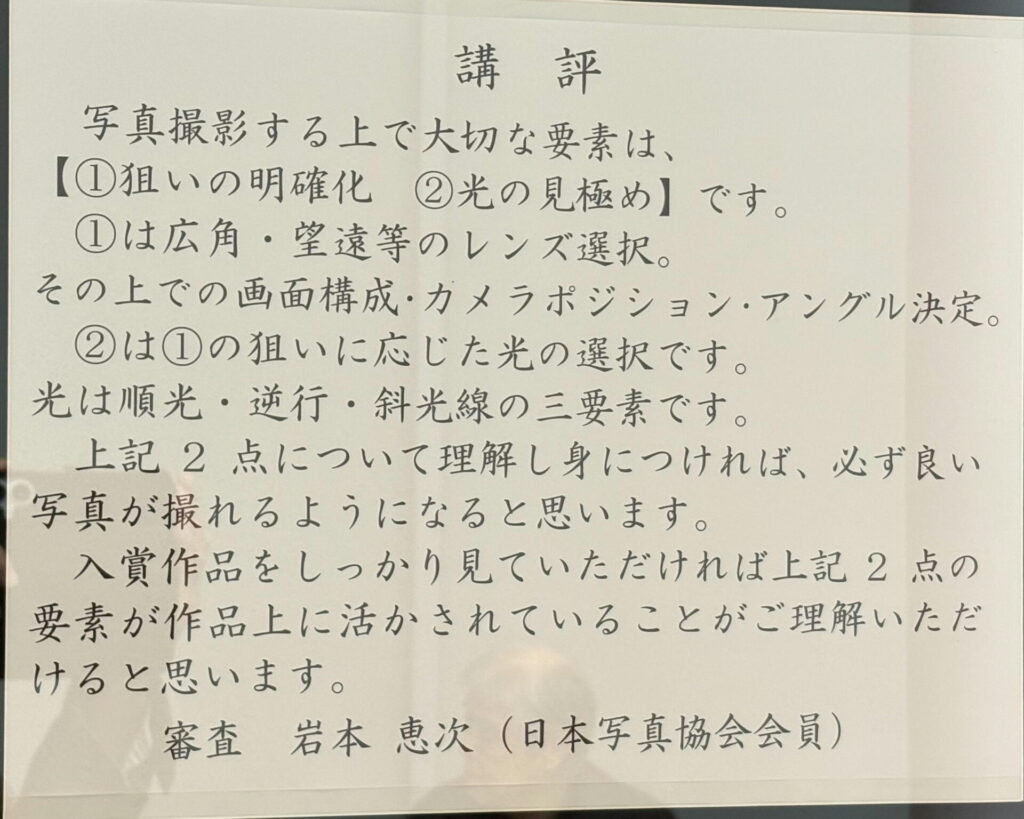 講　評
写真撮影する上で大切な要素は、
【①狙いの明確化　②光の見極め】です。
①は広角・望遠等のレンズ選択。
その上での画面構成・カメラポジション・アングル決定。
②は①の狙いに応じた光の選択です。
光は順光・逆行・斜光線の三要素です。
上記 2 点について理解し身につければ、必ず良い
写真が撮れるようになると思います。
入賞作品をしっかり見ていただければ上記 2 点の
要素が作品上に活かされていることがご理解いただ
けると思います。
審査　岩本 恵次（日本写真協会会員）